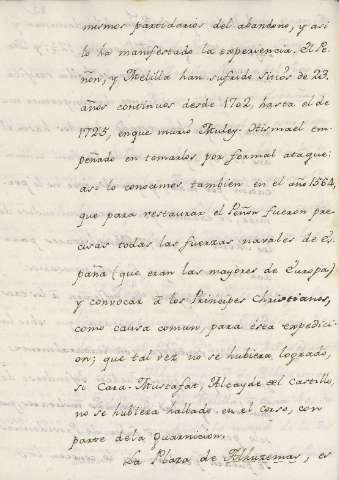 mismos partidarios del abandono, y asi
lo ha manifestado la experiencia. El Pe-
ñon, y Melilla han sufrido sitios de 23.
años continuos desde 1702, hasta el de
1725, en que murió Muley Hismael em-
peñado en tomarlos por formal ataque:
asi lo conocemos tambien en el año 1564,
que para restaurar el Peñon fueron pre-
cisas todas las fuerzas navales de Es-
paña (que eran las mayores de Europa)
y convocar á los Principes Christianos,
como causa comun, para esta expedici-
on; que tal vez no se hubiera logrado,
si Cara-Mustafat, Alcayde del Castillo,
no se hubiera hallado en el corso, con
parte dela Guarnicion.
La Plaza de Alhuzemas, es